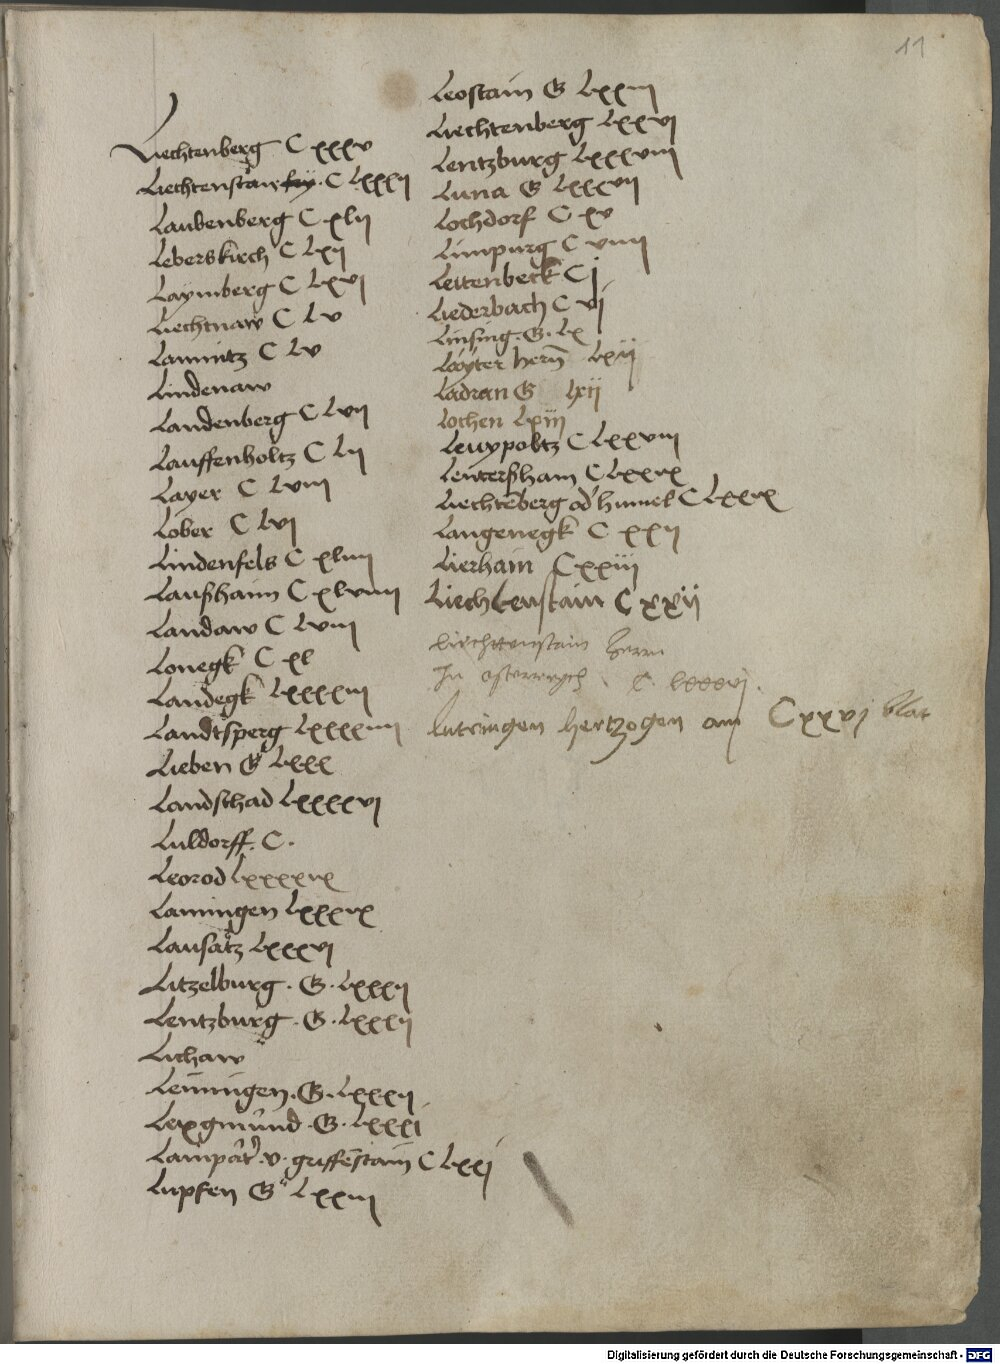 11
Liechtenberg C xxxv
Liechtenstain C lxxxij
Laubenberg C xlij
Leberskirch C lxij
Laymberg C lxvj
Liechtnaw C lv
Lamnitz C lv
Lindenaw
Landenberg C lvij
Lauffenholtz C lij
Layer C lviij
Lober C lvj
Lindenfels C xliiij
Laußhaim C xlviiij
Landaw C lviij
Lonegk C xl
Landegk lxxxxiij
Landtsperg lxxxxiiij
Lieben G lxxx
Landschad lxxxxvj
Luldorff. C.
Leorod lxxxxix
Lamingen lxxxix
Lausatz lxxxvj
Litzelburg . G . lxxxij
Lentzburg . G . lxxxij
Lichaw
Leiningen . G . lxxxij
Lexgmund . G . lxxxj
Lampart . v . griffestain C lxxj
Lupfen G lxxiij
Leostain G lxxiij
Liechtenberg lxxvj
Lentzburg lxxxviij
Luna G lxxxvij
Lochdorf C xv
Limpurg C viiij
Lettenbeck C j
Liederbach C vj
Linsing . G . lx
Layter hern lxij
Ladran G lxij
Lochen lxiij
Leuxpoltz C lxxviij
Leutersham C lxxix
Liechtenberg od' humel C lxxix
Langenegk C xxij
Lierhain C xxiij
Liechtenstain C xxij
Liechttenstain herrn
In osterrych . C . lxxxxvj .
Lutringen hertzogen am C xxvj blat
Digitalisierung gefördert durch die Deutsche Forschungsgemeinschaft - DFG